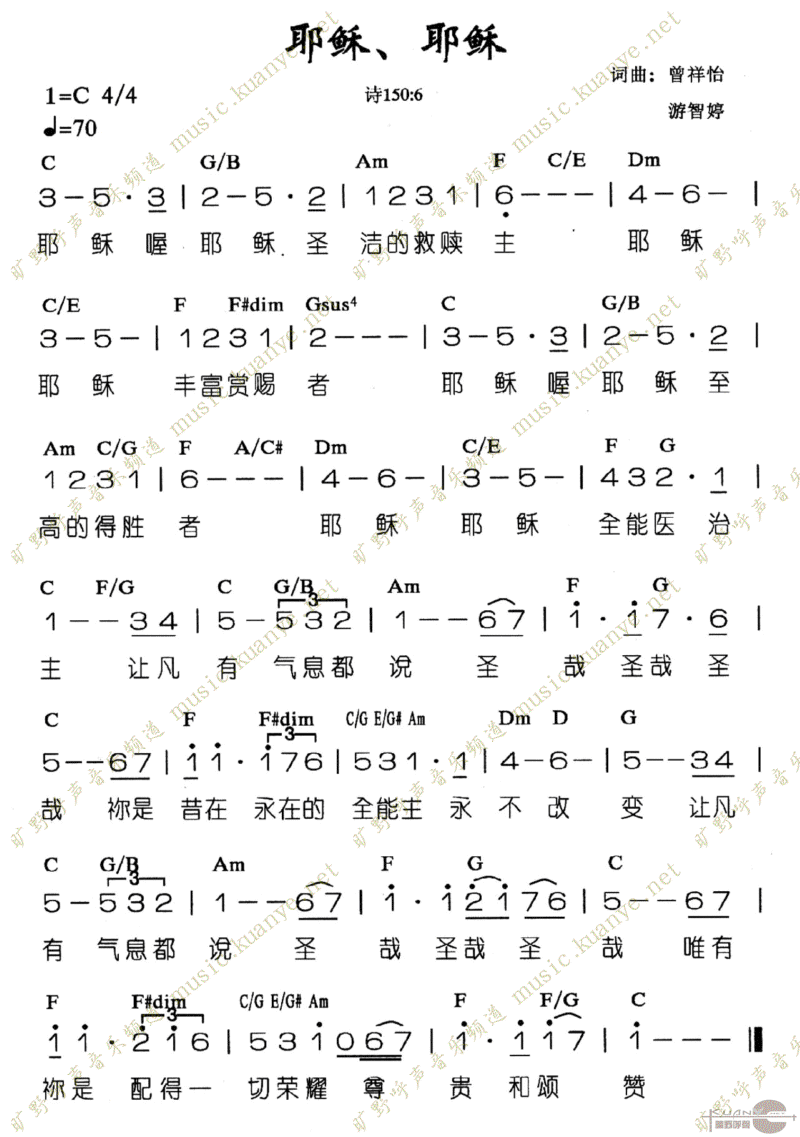 耶稣、耶稣
词曲：曾祥怡
1=C 4/4 诗150:6 游智婷
♩=70
C G/B Am F C/E Dm
3-5·3|2-5·2|1231|6---|4-6-|
耶 稣 喔 耶 稣 圣 洁的救赎 主 耶 稣
C/E F F#dim Gsus4 C G/B
3-5-|1231|2---|3-5·3|2-5·2|
耶 稣 丰富赏赐 者 耶 稣 喔 耶 稣 至
Am C/G F A/C# Dm C/E F G
1231|6---|4-6-|3-5-|432·1|
高的得胜 者 耶 稣 耶 稣 全能医 治
C F/G C G/B Am F G
3
1--34|5-532|1--67|i·i7·6|
主 让凡 有 气息都 说 圣 哉 圣哉 圣
C F F#dim C/G E/G# Am Dm D G
3
5--67|ii·i76|531·1|4-6-|5--34|
哉 祢是 昔在 永在的 全能主 永 不 改 变 让凡
C G/B Am F G C
3
5-532|1--67|i·2i76|5--67|
有 气息都 说 圣 哉 圣哉 圣 哉 唯有
F F#dim C/G E/G# Am F F/G C
3
ii·2i6|53i067|i·ii7|i---‖
祢是 配得一 切荣耀 尊 贵 和颂 赞
旷野呼声音乐频道 music.kuanye.net
KUANYE
旷野呼声